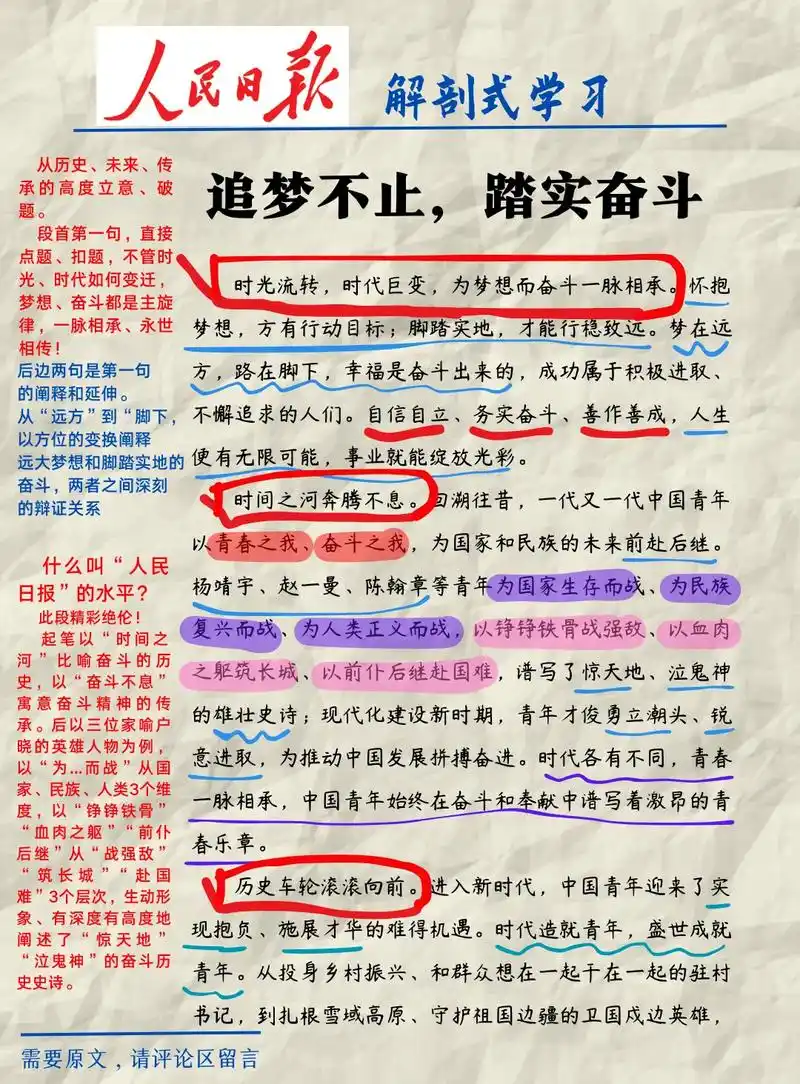 人民日报
解剖式学习
追梦不止，踏实奋斗
从历史、未来、传
承的高度立意、破
题。
段首第一句，直接
点题、扣题，不管时
光、时代如何变迁，
梦想、奋斗都是主旋
律，一脉相承、永世
相传！
后边两句是第一句
的阐释和延伸。
从“远方”到“脚下，
以方位的变换阐释
远大梦想和脚踏实地的
奋斗，两者之间深刻
的辩证关系
什么叫“人民
日报”的水平？
此段精彩绝伦！
起笔以“时间之
河”比喻奋斗的历
史，以“奋斗不息”
寓意奋斗精神的传
承。后以三位家喻户
晓的英雄人物为例，
以“为...而战”从国
家、民族、人类3个维
度，以“铮铮铁骨”
“血肉之躯”“前仆
后继”从“战强敌”
“筑长城”“赴国
难”3个层次，生动形
象、有深度有高度地
阐述了“惊天地”
“泣鬼神”的奋斗历
史史诗。
时光流转，时代巨变，为梦想而奋斗一脉相承。怀抱
梦想，方有行动目标；脚踏实地，才能行稳致远。梦在远
方，路在脚下，幸福是奋斗出来的，成功属于积极进取、
不懈追求的人们。自信自立、务实奋斗、善作善成，人生
便有无限可能，事业就能绽放光彩。
时间之河奔腾不息。回溯往昔，一代又一代中国青年
以青春之我、奋斗之我，为国家和民族的未来前赴后继。
杨靖宇、赵一曼、陈翰章等青年为国家生存而战、为民族
复兴而战、为人类正义而战，以铮铮铁骨战强敌、以血肉
之躯筑长城、以前仆后继赴国难，谱写了惊天地、泣鬼神
的雄壮史诗；现代化建设新时期，青年才俊勇立潮头、锐
意进取，为推动中国发展拼搏奋进。时代各有不同，青春
一脉相承，中国青年始终在奋斗和奉献中谱写着激昂的青
春乐章。
历史车轮滚滚向前。进入新时代，中国青年迎来了实
现抱负、施展才华的难得机遇。时代造就青年，盛世成就
青年。从投身乡村振兴、和群众想在一起干在一起的驻村
书记，到扎根雪域高原、守护祖国边疆的卫国戍边英雄，
需要原文，请评论区留言